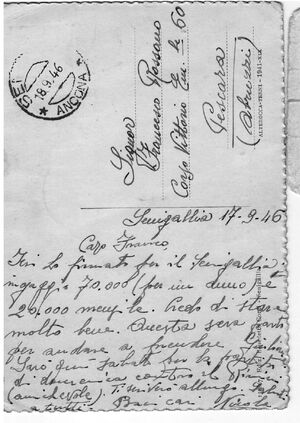 SE
18.9.46
* ANCONA *
Signor
Francesco Rossano
Corso Vittorio Em. le 60
Pescara
(Abruzzi)
ALTEROCCA-TERNI - 1941-XIX
Senigallia 17-9-46
Caro Franco
Ieri ho firmato per il Senigallia.
Ingaggio 70.000 (per un anno) e
20.000 mensile. Credo di stare
molto bene. Questa sera parto
per andare a prendere
Sarò qui sabato per la
di domenica contro il
(amichevole) Ti scriverò a lungo. Saluti
a tutti Baci cari